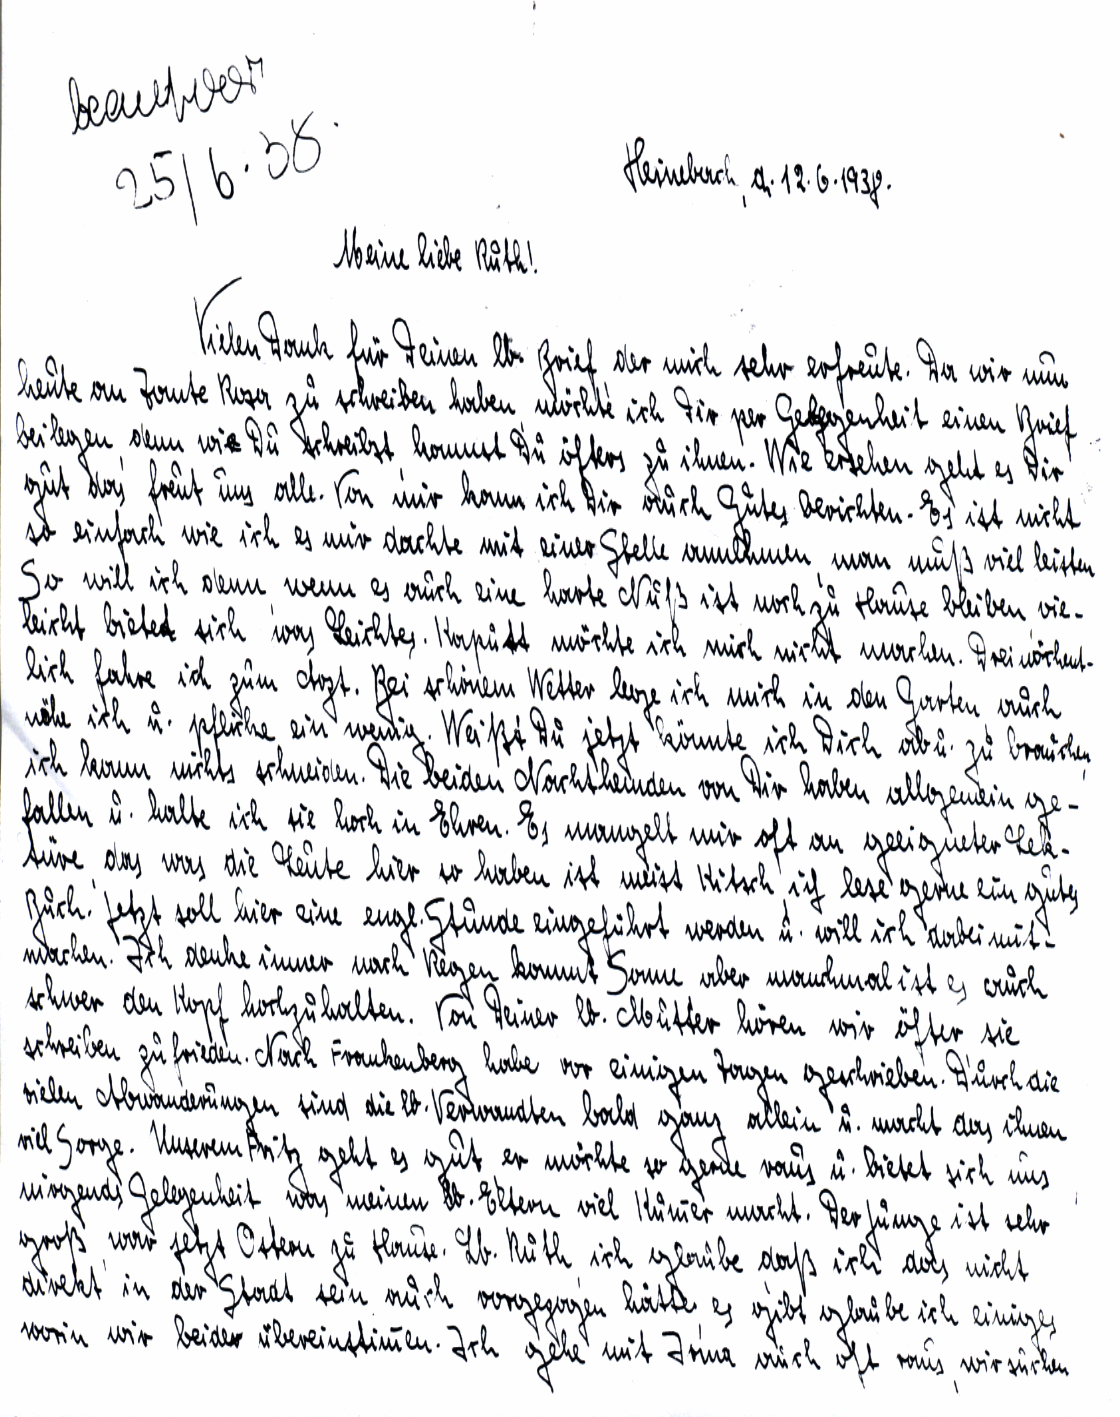 beantwort
25/6.38.
Heinebach, d. 12.6.1938.
Meine liebe Ruth!
Vielen Dank für Deinen lb. Brief der mich sehr erfreute. Da wir nun
heute an Tante Rosa zu schreiben haben, möchte ich Dir per Gelegenheit einen Brief
beilegen, denn wie Du schreibst, kommst Du öfters zu ihnen. Wie ersehen geht es Dir
gut das freut uns alle. Von mir kann ich Dir auch Gutes berichten. Es ist nicht
so einfach wie ich es mir dachte mit einer Stelle annehmen, man muß viel leisten
So will ich denn, wenn es auch eine harte Nuß ist noch zu Hause bleiben vie-
leicht bietet sich was Leichtes. Kaputt möchte ich mich nicht machen. Drei wöchent-
lich fahre ich zum Arzt. Bei schönem Wetter lege ich mich in den Garten auch
nähe ich u. pflücke ein wenig. Weißt Du jetzt könnte ich Dich ab u. zu brauchen,
ich kann nichts schneiden. Die beiden Nachthemden von Dir haben allgemein ge-
fallen u. halte ich sie hoch in Ehren. Es mangelt mir oft an geeigneter Lek-
türe, das was die Leute hier so haben ist meist Kitsch, ich lese gerne ein gutes
Buch. Jetzt soll hier eine engl. Stunde eingeführt werden u. will ich dabei mit-
machen. Ich denke immer nach Regen kommt Sonne aber manchmal ist es auch
schwer den Kopf hochzuhalten. Von Deiner lb. Mutter hören wir öfter sie
schreiben zufrieden. Nach Frankenberg habe vor einigen Tagen geschrieben. Durch die
vielen Abwanderungen sind die lb. Verwandten bald ganz allein u. macht das ihnen
viel Sorge. Unserem Fritz geht es gut er möchte so gerne raus u. bietet sich uns
nirgends Gelegenheit was meinen lb. Eltern viel Kum̅er macht. Der Junge ist sehr
groß, war jetzt Ostern zu Hause. Lb. Ruth, ich glaube daß ich das nicht
direkt in der Stadt sein auch vorgezogen hätte, es gibt glaube ich einiges
worin wir beider übereinstim̅en. Ich gehe mit Irma auch oft raus, wir suchen